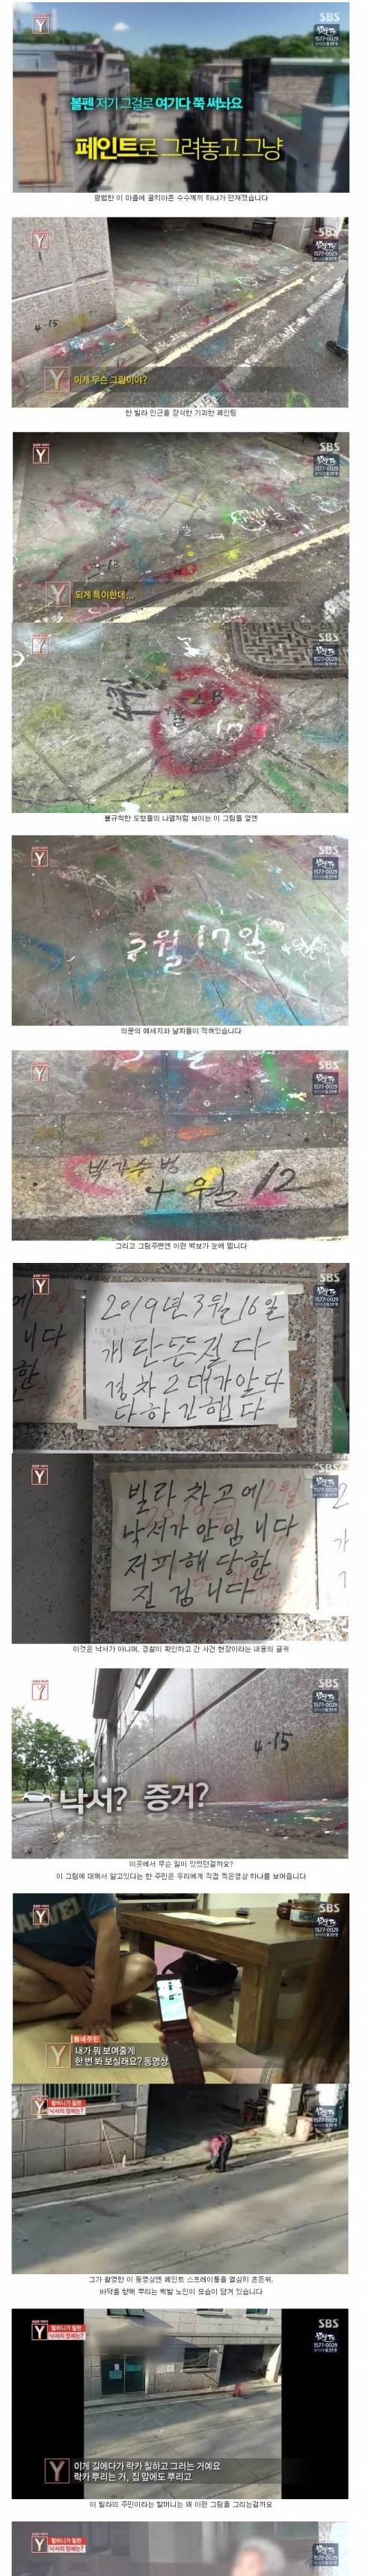 SBS
1577-0029
볼펜 저기 그걸로 여기다 쭉 써놔요
페인트로 그려놓고 그냥
평범한 이 마을에 골치아픈 수수께끼 하나가 던져졌습니다
Y
SBS
1577-0029
4-15
Y 이게 무슨 그림이야?
한 빌라 인근을 장식한 기괴한 페인팅
Y
SBS
1577-0029
Y 되게 특이한데...
SBS
1577-0029
17
불규칙한 도형들의 나열처럼 보이는 이 그림들 옆엔
SBS
1577-0029
3월 17일
의문의 메세지와 날짜들이 적혀있습니다
Y
SBS
1577-0029
12
그리고 그림주변엔 이런 벽보가 눈에 띕니다
Y
SBS
1577-0029
2019년 3월 16일
경차 2대가 알다
Y
SBS
1577-0029
빌라 차고에
낙서가 안임니다
저 피해 당한
진 검니다
이것은 낙서가 아니며, 경찰이 확인하고 간 사건 현장이라는 내용의 글귀
SBS
1577-0029
4-15
낙서? 증거?
이곳에서 무슨 일이 있었던걸까요?
이 그림에 대해서 알고있다는 한 주민은 우리에게 직접 찍은영상 하나를 보여줍니다
Y
SBS
1577-0029
동네주민
Y 내가 뭐 보여줄게
한 번 봐 보실래요? 동영상
Y 할머니가 칠한
낙서의 정체는?
SBS
1577-0029
그가 촬영한 이 동영상엔 페인트 스프레이통을 열심히 흔든뒤,
바닥을 향해 뿌리는 백발 노인이 모습이 담겨 있습니다
Y 할머니가 칠한
낙서의 정체는?
SBS
1577-0029
Y 이게 길에다가 락카 칠하고 그러는 거예요
락카 뿌리는 거, 집 앞에도 뿌리고
이 빌라의 주민이라는 할머니는 왜 이런 그림을 그리는걸까요
Y 할머니가 칠한
낙서의 정체는?